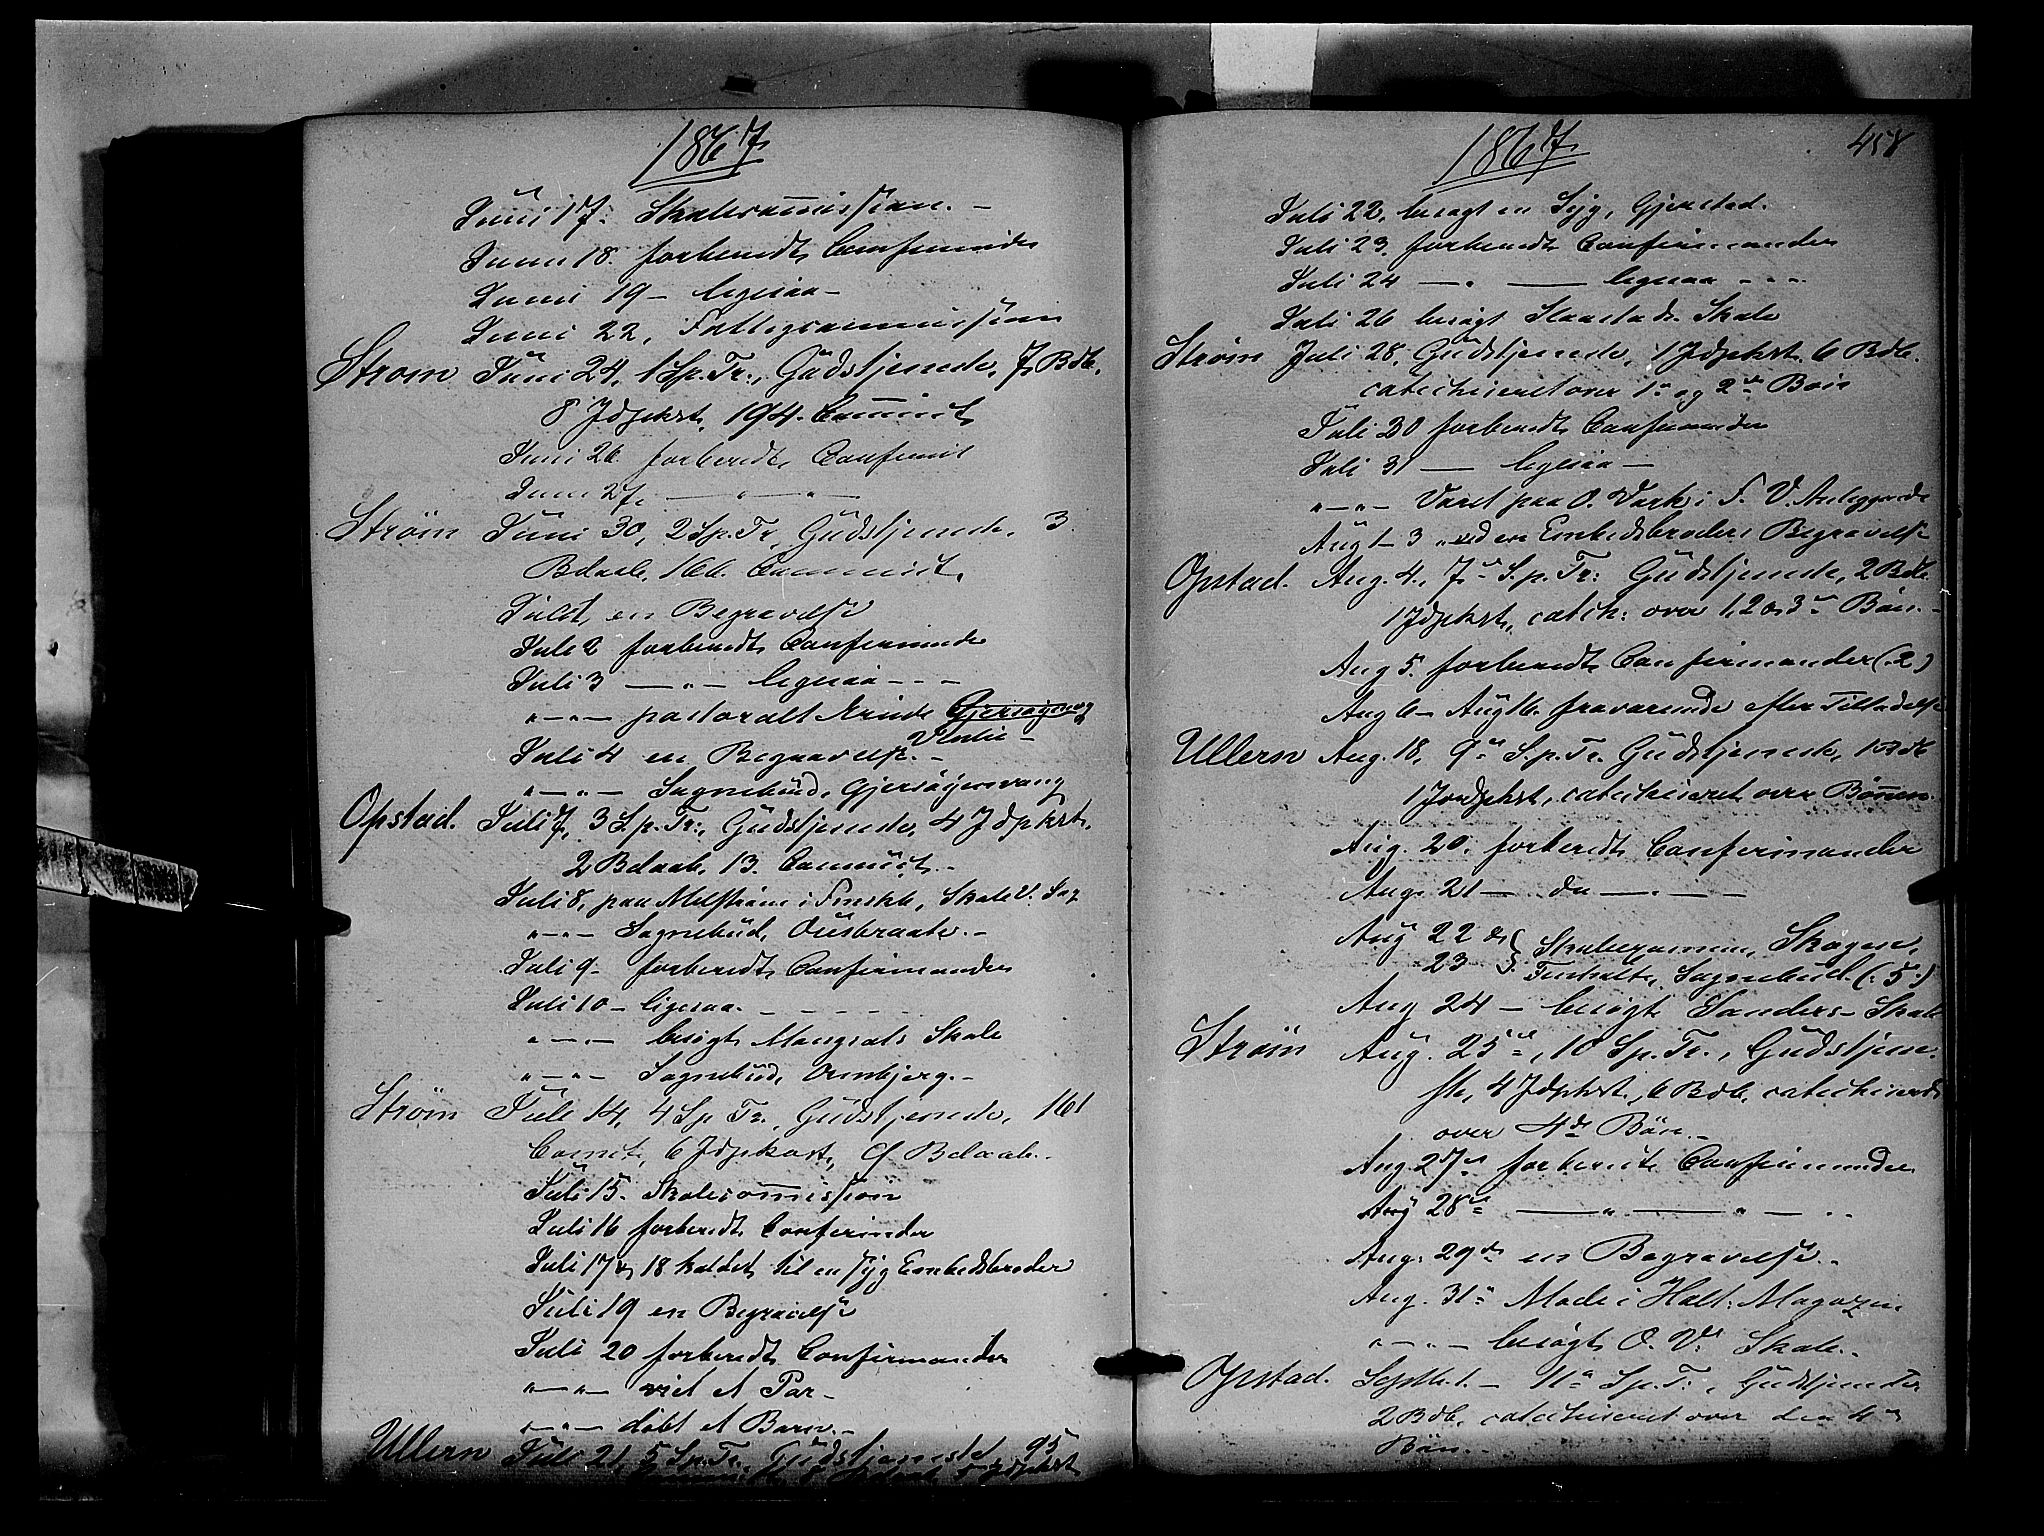 1867
Juni 17. Skolecommission. –
Juni 18. forberedt Confirmander
Juni 19 – ligesaa –
Juni 22, Fattigcommission
Strøm Juni 24, 1 S.p. Tr., Gudstjeneste, 7 Bdb.
8 Jdgkst, 194 Communic.
Juni 26 forberedt Confirm.
Juni 27. — " — " —
Strøm Juni 30, 2 S.p. Tr., Gudstjeneste, 3
Bdaab, 166 Communict.
Juli 1, en Begravelse
Juli 2 forberedt Confirmande
Juli 3 — " — ligesaa – – –
" – " – pastoralt Ærinde
Juli 4 en Begravelse. –
" – " – Sognebud, Gjersøyenvang
Opstad. Juli 7, 3 S.p. Tr., Gudstjeneste, 4 Jdgkst,
2 Bdaab, 13 Communict. –
Juli 8, paa i Skole
" – " – Sognebud, Ousbraate. –
Juli 9 – forberedt Confirmander
Juli 10 – ligesaa. – – – – –
" – " – besøgt Mangrals Skole
" – " – Sognebud, Ornbjerg. –
Strøm Juli 14, 4 S.p. Tr., Gudstjeneste, 161
Comct, 6 Jdgkst, 9 Bdaab. –
Juli 15. Skolecommission
Juli 16 forberedt Confirmander
Juli 17 & 18 kaldet til en syg Embedsbroder
Juli 19 en Begravelse
Juli 20 forberedt Confirmander
" – " – viet et Par –
" – " – døbt et Barn. –
Ullern Juli 21, 5 S.p. Tr., Gudstjeneste, 95
8 Bdaab, 5 Jdgkst
1867. 458
Juli 22, besøgt en Syg, Gjerstad.
Juli 23, forberedt Confirmander
Juli 24 — " — ligesaa – – –
Juli 26 besøgt Slaastads Skole
Strøm Juli 28, Gudstjeneste, 1 Jdgkst, 6 Bdb.
catechiseret over 1ste og 2den Bøn
Juli 30 forberedt Confirmander
Juli 31 — ligesaa –
" – " – Været paa O. Værk i
Aug 1 – 3 ved en Embedsbroders Begravelse
Opstad. Aug. 4, 7de S.p. Tr. Gudstjeneste, 2 Bdb
1 Jdgkst, catech. over 1, 2 & 3die Bøn. –
Aug 5. forberedt Confirmander (2)
Aug 6 – Aug 16. fraværende efter Tilladelse
Ullern Aug. 18, 9de S.p. Tr. Gudstjeneste, 1 Bdb
1 Jordpkst, catechiseret over Bønnen.
Aug. 20, forberedt Confirmander
Aug. 21 — do — " —
Aug 22 & } Skoleexamen, Skogen,
23 Sognebud. (5)
Aug 24 – besøgt Sanders Skole
Strøm Aug. 25de, 10 S.p. Tr., Gudstjene-
ste, 4 Jdgkst, 6 Bdb, catechiseret
over 4de Bøn. –
Aug 27de forberedt Confirmander
Aug 28de — " — " – – –
Aug. 29de en Begravelse. –
Aug. 31te Møde i Magazin
" – " – besøgt O. V. Skole. –
Opstad. Septb. 1. – 11te S.p. Tr., Gudstjeneste
2 Bdb, catechiseret over den 4de
Bøn. –